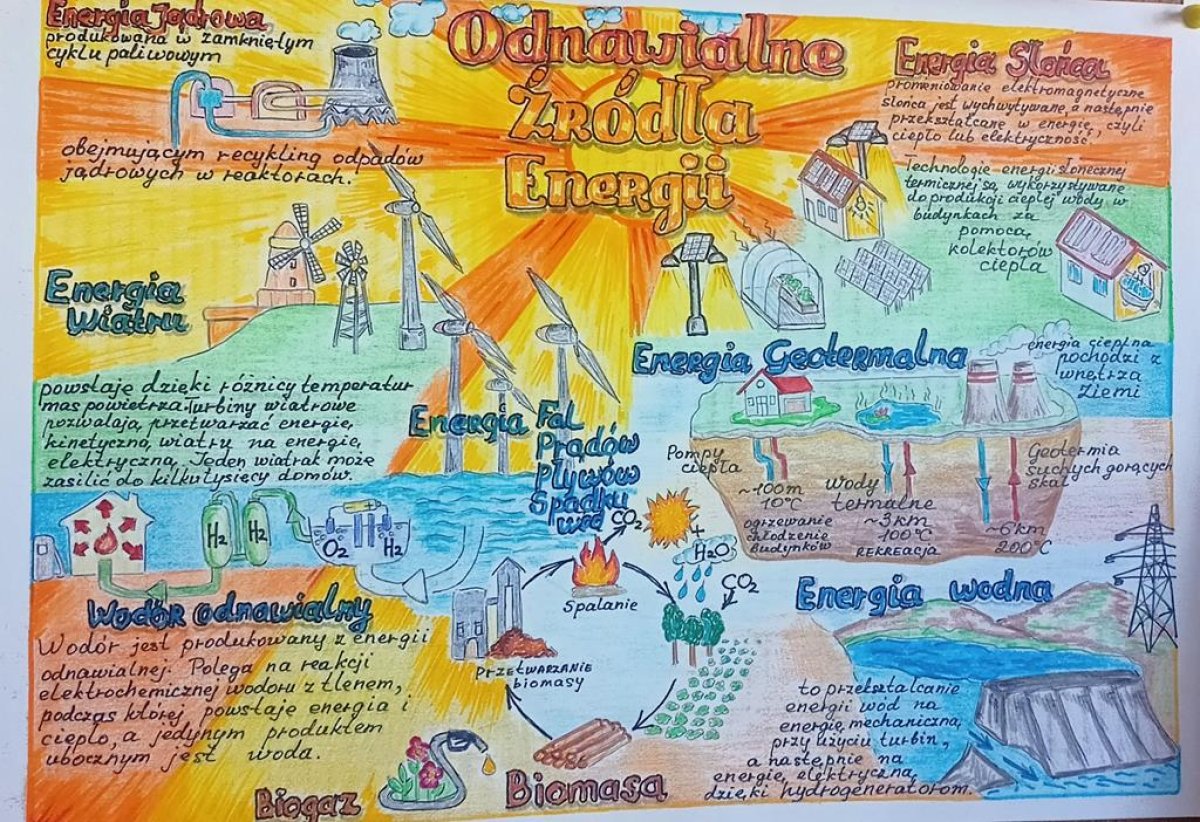 Odnawialne
Źródła
Energii
Energia Jądrowa
produkowana w zamkniętym
cyklu paliwowym
obejmującym recykling odpadów
jądrowych w reaktorach.
Energia Słońca
promieniowanie elektromagnetyczne
słońca jest wychwytywane, a następnie
przekształcane w energię, czyli
ciepło lub elektryczność.
Technologie energii słonecznej
termicznej są wykorzystywane
do produkcji ciepłej wody w
budynkach za
pomocą
kolektorów
ciepła
Energia
Wiatru
powstaję dzięki różnicy temperatur
mas powietrza. Turbiny wiatrowe
pozwalają przetwarzać energię
kinetyczną wiatru na energię
elektryczną. Jeden wiatrak może
zasilić do kilku tysięcy domów.
Energia Fal
Prądów
Pływów
Spadku
wód
Energia Geotermalna
energia cieplna
pochodzi z
wnętrza
Ziemi
Pompy
ciepła
~100m
10°C
ogrzewanie
chłodzenie
budynków
Wody
termalne
~3km
100°C
REKREACJA
Geotermia
suchych gorących
skał
~6km
200°C
H2
H2
O2
H2
Wodór odnawialny
Wodór jest produkowany z energii
odnawialnej. Polega na reakcji
elektrochemicznej wodoru z tlenem,
podczas której powstaję energia i
ciepło, a jedynym produktem
ubocznym jest woda.
CO2
+
H2O
CO2
Spalanie
Przetwarzanie
biomasy
Biomasa
Biogaz
Energia wodna
to przekształcanie
energii wód na
energię mechaniczną
przy użyciu turbin,
a następnie na
energię elektryczną
dzięki hydrogeneratorom.